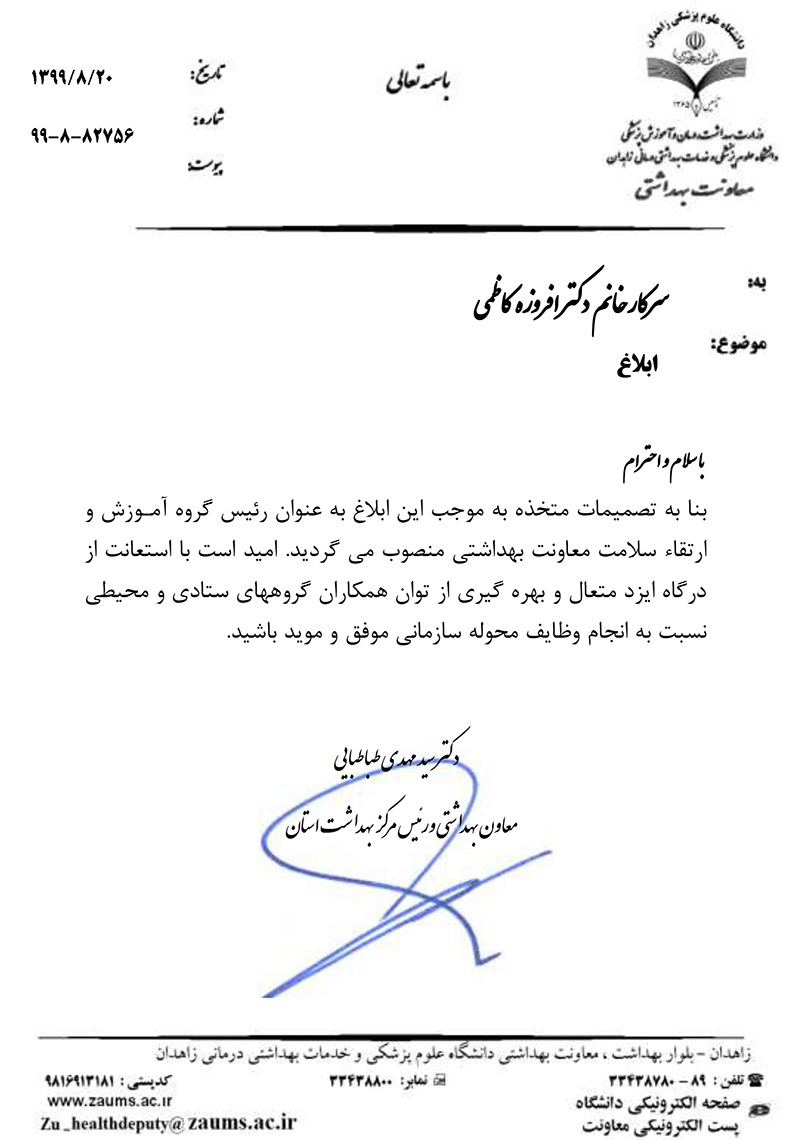 باسمه تعالی
دانشگاه علوم پزشکی زاهدان
تاسیس ۱۳۶۵
وزارت بهداشت، درمان و آموزش پزشکی
دانشگاه علوم پزشکی و خدمات بهداشتی درمانی زاهدان
معاونت بهداشتی
تاریخ: ۱۳۹۹/۸/۲۰
شماره: ۹۹-۸-۸۲۷۵۶
پیوست:
به: سرکار خانم دکتر افروزه کاظمی
موضوع: ابلاغ
با سلام و احترام
بنا به تصمیمات متخذه به موجب این ابلاغ به عنوان رئیس گروه آموزش و
ارتقاء سلامت معاونت بهداشتی منصوب می گردید. امید است با استعانت از
درگاه ایزد متعال و بهره گیری از توان همکاران گروههای ستادی و محیطی
نسبت به انجام وظایف محوله سازمانی موفق و موید باشید.
دکتر سید مهدی طباطبایی
معاون بهداشتی و رئیس مرکز بهداشت استان
زاهدان - بلوار بهداشت ، معاونت بهداشتی دانشگاه علوم پزشکی و خدمات بهداشتی درمانی زاهدان
تلفن : ۸۹ - ۳۳۴۳۸۷۸۰ نمابر: ۳۳۴۳۸۸۰۰ کدپستی : ۹۸۱۶۹۱۳۱۸۱
صفحه الکترونیکی دانشگاه www.zaums.ac.ir
پست الکترونیکی معاونت Zu_healthdeputy@zaums.ac.ir